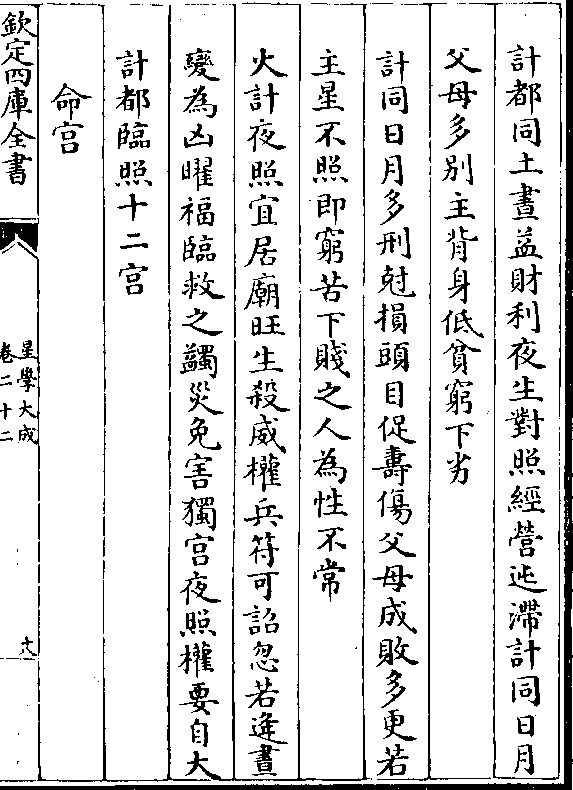 計都同土晝益財利夜生對照經營迍滯計同日月
父母多別主背身低貧窮下劣
計同日月多刑尅損頭目促壽傷父母成敗多更若
主星不照即窮苦下賤之人為性不常
火計夜照宜居廟旺生殺威權兵符可詔忽若逢晝
變為凶曜福臨救之蠲災免害獨宫夜照權要自大
計都臨照十二宫
命宫
欽定四庫全書
星學大成
卷二十二
十八